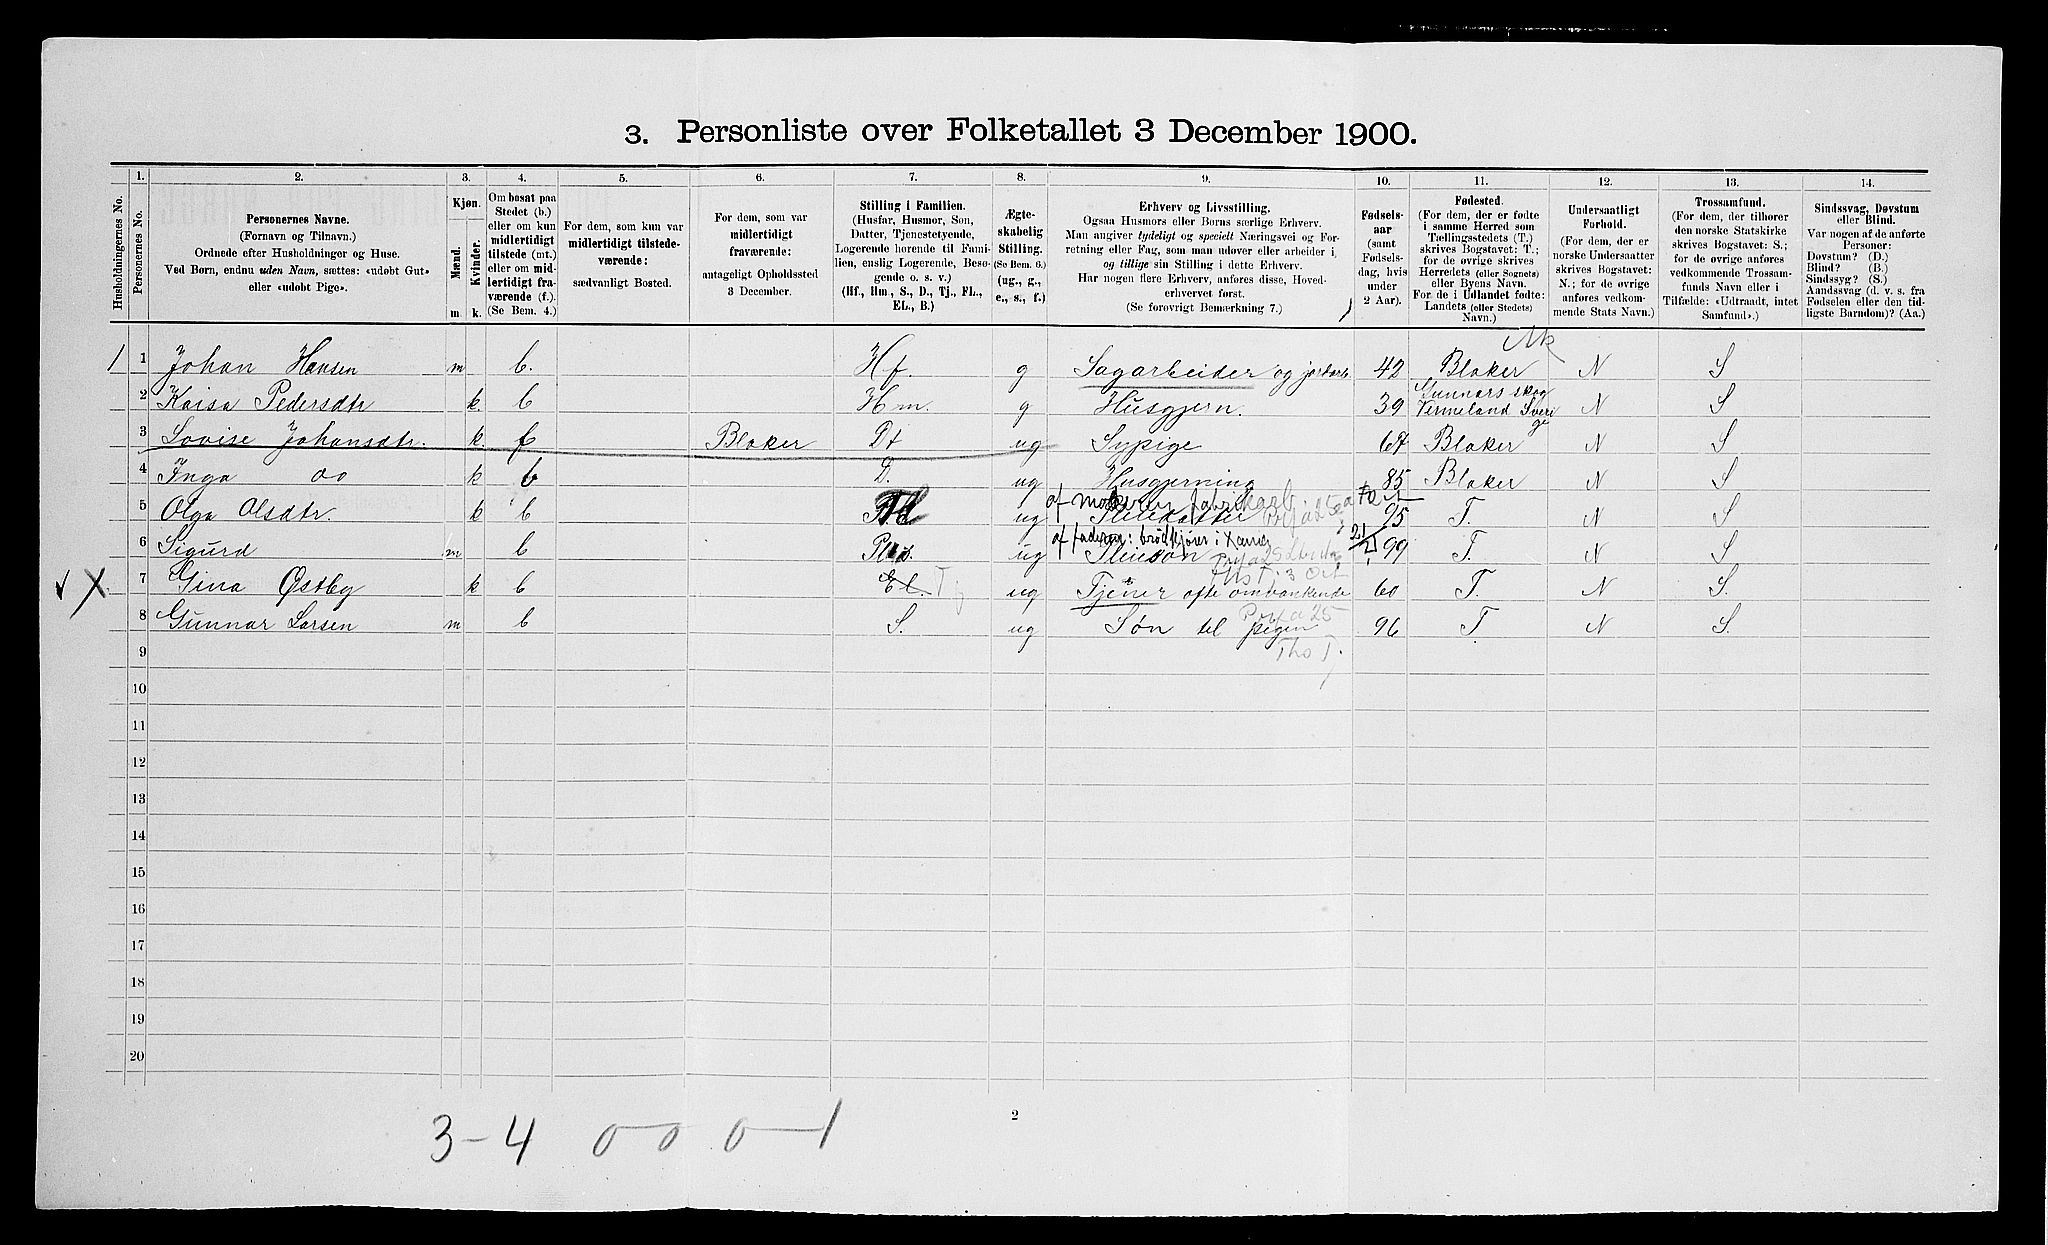 3. Personliste over Folketallet 3 December 1900.
Husholdningernes No.
1.
Personernes No.
2.
Personernes Navne.
(Fornavn og Tilnavn.)
Ordnede efter Husholdninger og Huse.
Ved Børn, endnu uden Navn, sættes: «udøbt Gut»
eller «udøbt Pige».
3.
Kjøn.
Mænd.
Kvinder.
m. k.
4.
Om bosat paa
Stedet (b.)
eller om kun
midlertidigt
tilstede (mt.)
eller om mid-
lertidigt fra-
værende (f.).
(Se Bem. 4.)
5.
For dem, som kun var
midlertidigt tilstede-
værende:
sædvanligt Bosted.
6.
For dem, som var
midlertidigt
fraværende:
antageligt Opholdssted
3 December.
7.
Stilling i Familien.
(Husfar, Husmor, Søn,
Datter, Tjenestetyende,
Logerende hørende til Fami-
lien, enslig Logerende, Besø-
gende o. s. v.)
(Hf., Hm., S., D., Tj., FL.,
EL., B.)
8.
Ægte-
skabelig
Stilling.
(Se Bem. 6.)
(ug., g.,
e., s., f.)
9.
Erhverv og Livsstilling.
Ogsaa Husmors eller Børns særlige Erhverv.
Man angiver tydeligt og specielt Næringsvei og For-
retning eller Fag, som man udøver eller arbeider i,
og tillige sin Stilling i dette Erhverv.
Har nogen flere Erhverv, anføres disse, Hoved-
erhvervet først.
(Se forøvrigt Bemærkning 7.)
10.
Fødsels-
aar
(samt
Fødsels-
dag, hvis
under
2 Aar).
11.
Fødested.
(For dem, der er fødte
i samme Herred som
Tællingsstedets (T.)
skrives Bogstavet: T.;
for de øvrige skrives
Herredets (eller Sognets)
eller Byens Navn.
For de i Udlandet fødte:
Landets (eller Stedets)
Navn.)
12.
Undersaatligt
Forhold.
(For dem, der er
norske Undersaatter
skrives Bogstavet:
N.; for de øvrige
anføres vedkom-
mende Stats Navn.)
13.
Trossamfund.
(For dem, der tilhører
den norske Statskirke
skrives Bogstavet: S.;
for de øvrige anføres
vedkommende Trossam-
funds Navn eller i
Tilfælde: «Udtraadt, intet
Samfund».)
14.
Sindssvag, Døvstum
eller Blind.
Var nogen af de anførte
Personer:
Døvstum? (D.)
Blind? (B.)
Sindssyg? (S.)
Aandssvag (d. v. s. fra
Fødselen eller den tid-
ligste Barndom)? (Aa.)
Ak
1 1 Johan Hansen m b. Hf. g Sagarbeider og jordarb. 42 Blaker N S
2 Kaisa Pedersdtr k. b Hm. g Husgjern. 39 Gunnarsskog
Vermeland Sverige N S
3 Lovise Johansdtr. k f Blaker Dt ug Sypige 67 Blaker N S
4 Inga oo k b D. ug Husgjerning 85 Blaker N S
5 Olga Olsdtr. k b ug af Pleiedatter 95 T. N S
6 Sigurd m b Pl. s. ug af faderen: brødkjører i Pleiesøn 21/1 99 T. N S
X 7 Gina Østby k b El. Tj ug Tjener ofte omvankende 60 T. N S.
8 Gunnar Larsen m b S. ug Søn til pigen 96 T N S.
9
10
11
12
13
14
15
16
17
18
19
20
2
3-4 0-0 0-1